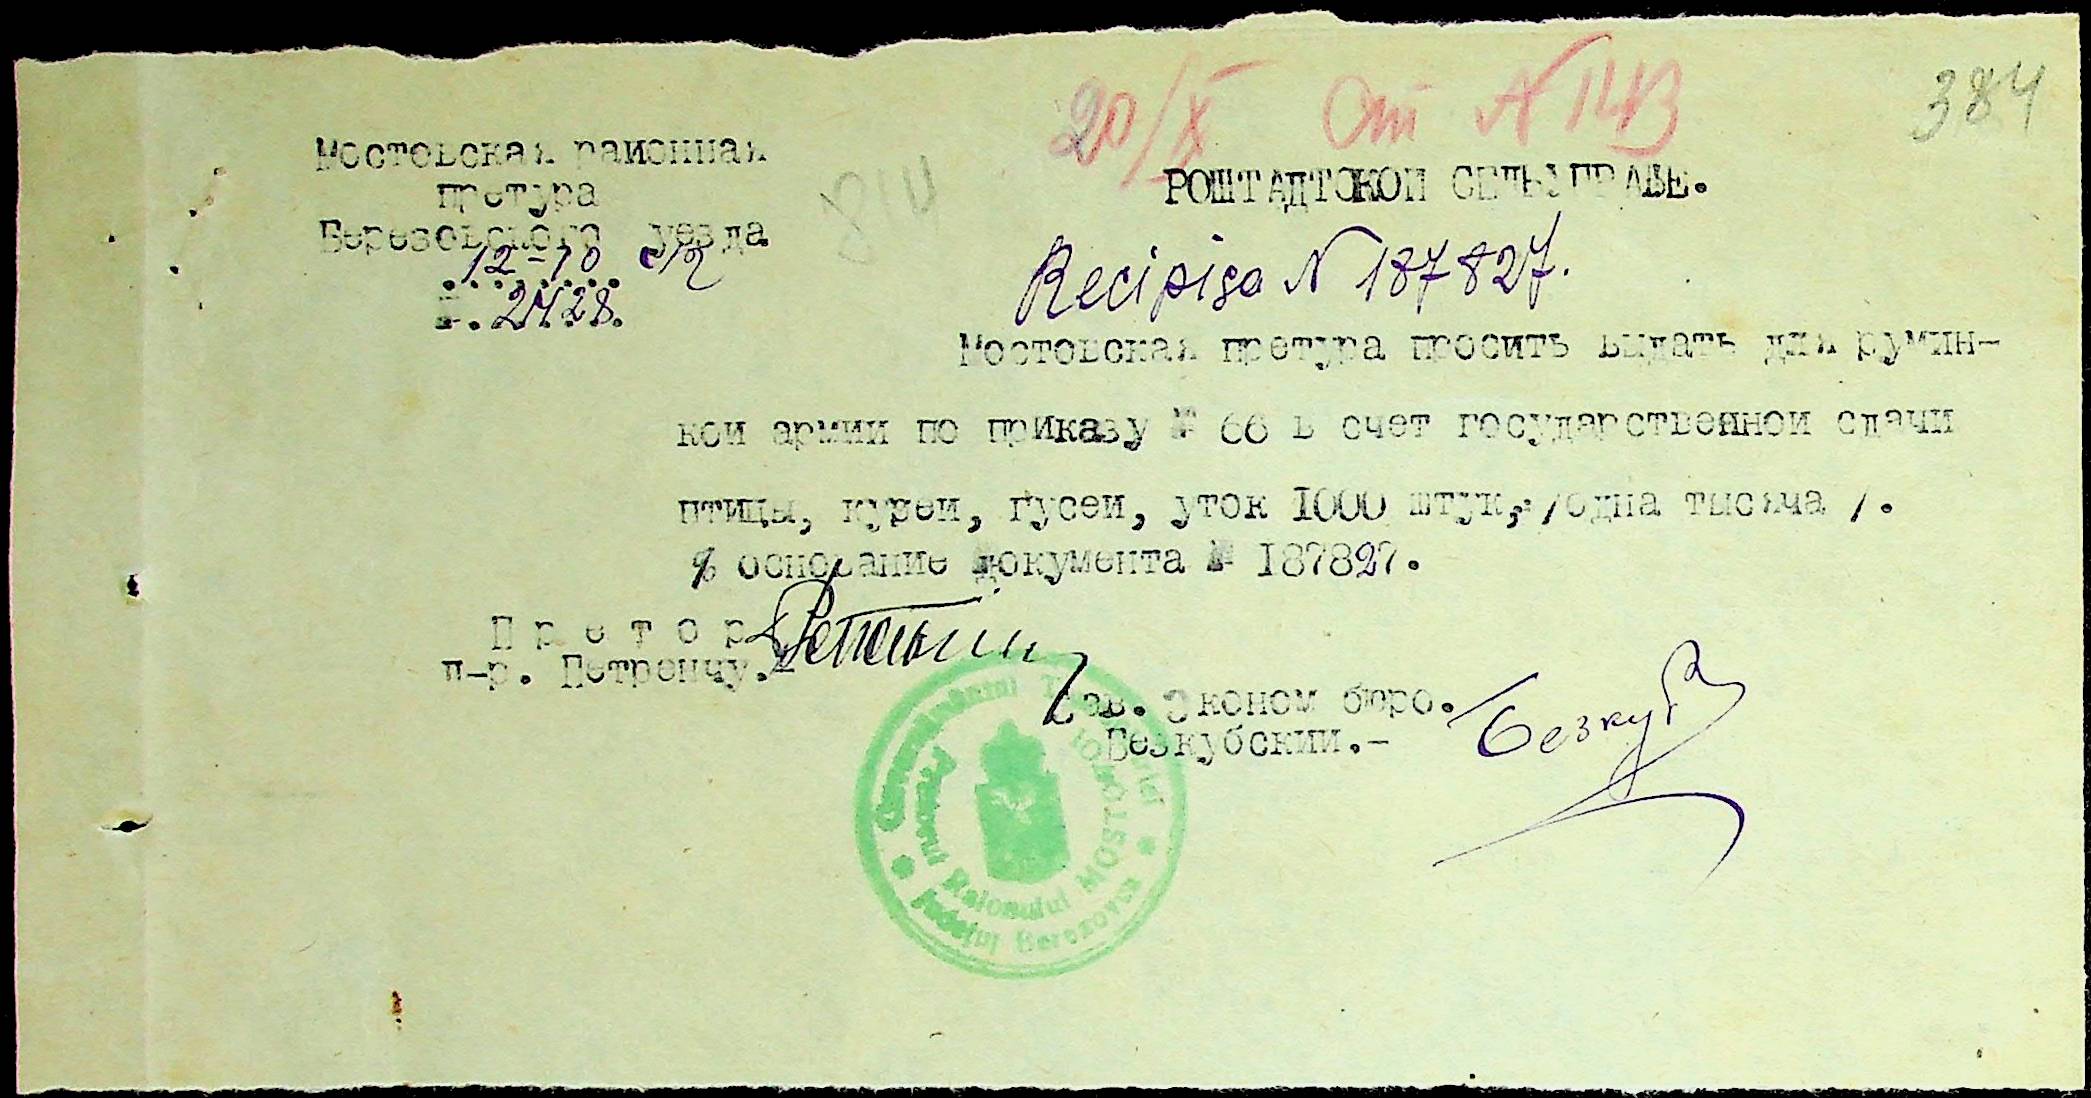 20/X От N 143
384
Мостовская районная
претура
Березовского уезда
12-10
№. 2428.
814
РОШТАДТСКОЙ СЕЛЬУПРАВЕ.
Recipisa N 187827.
Мостовская претура просить выдать для румин-
кой армии по приказу № 66 в счет государственной сдачи
птицы, курей, гусей, уток 1000 штук, /одна тысяча /.
основание документа № 187827.
Претор
п-р. Петренчу.
Зав. Эконом бюро.
Безкубский.-
Безкуб
Guvernământul Transnistriei
Pretura Raionului MOSTOVOI
Județul Berezovca